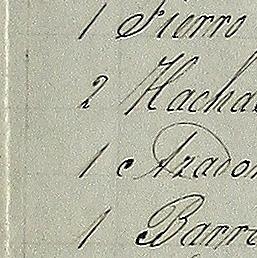 1 Fierro
2 Hacha
1 Azadon
1 Barre